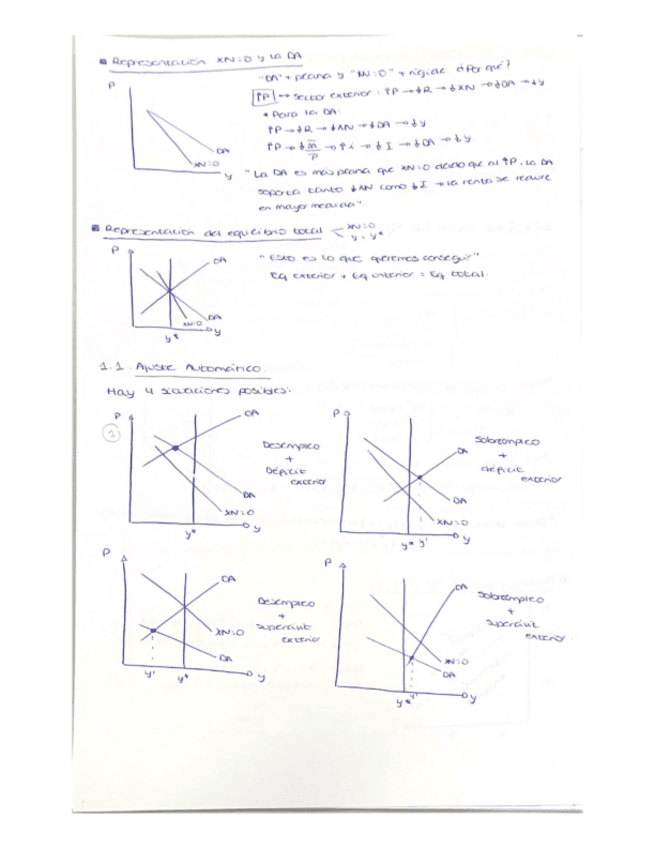 Representación XN=0 y la DA
"DA" + plana y "XN=0" + rígida ¿Por qué?
P
↑P → sector exterior: ↑P → ↓R → ↓XN → ↓DA → ↓y
* Para la DA:
↑P → ↓R → ↓XN → ↓DA → ↓y
↑P → ↓ m/P → ↑i → ↓I → ↓DA → ↓y
DA
XN=0
y
"La DA es más plana que XN=0 dado que al ↑P, la DA
soporta tanto ↓XN como ↓I → la renta se reduce
en mayor medida".
Representación del equilibrio total
XN=0
y=y*
P
OA
"Esto es lo que queremos conseguir"
Eq exterior + Eq interior = Eq total.
DA
XN=0
y
y*
1.1. Ajuste Automático.
Hay 4 situaciones posibles:
P
1
OA
Desempleo
+
Déficit
exterior
DA
XN=0
y
y*
P
OA
Sobreempleo
+
déficit
exterior
DA
XN=0
y
y* y'
P
OA
Desempleo
+
superávit
exterior
XN=0
DA
y
y' y*
P
OA
Sobreempleo
+
superávit
exterior
XN=0
DA
y
y* y'